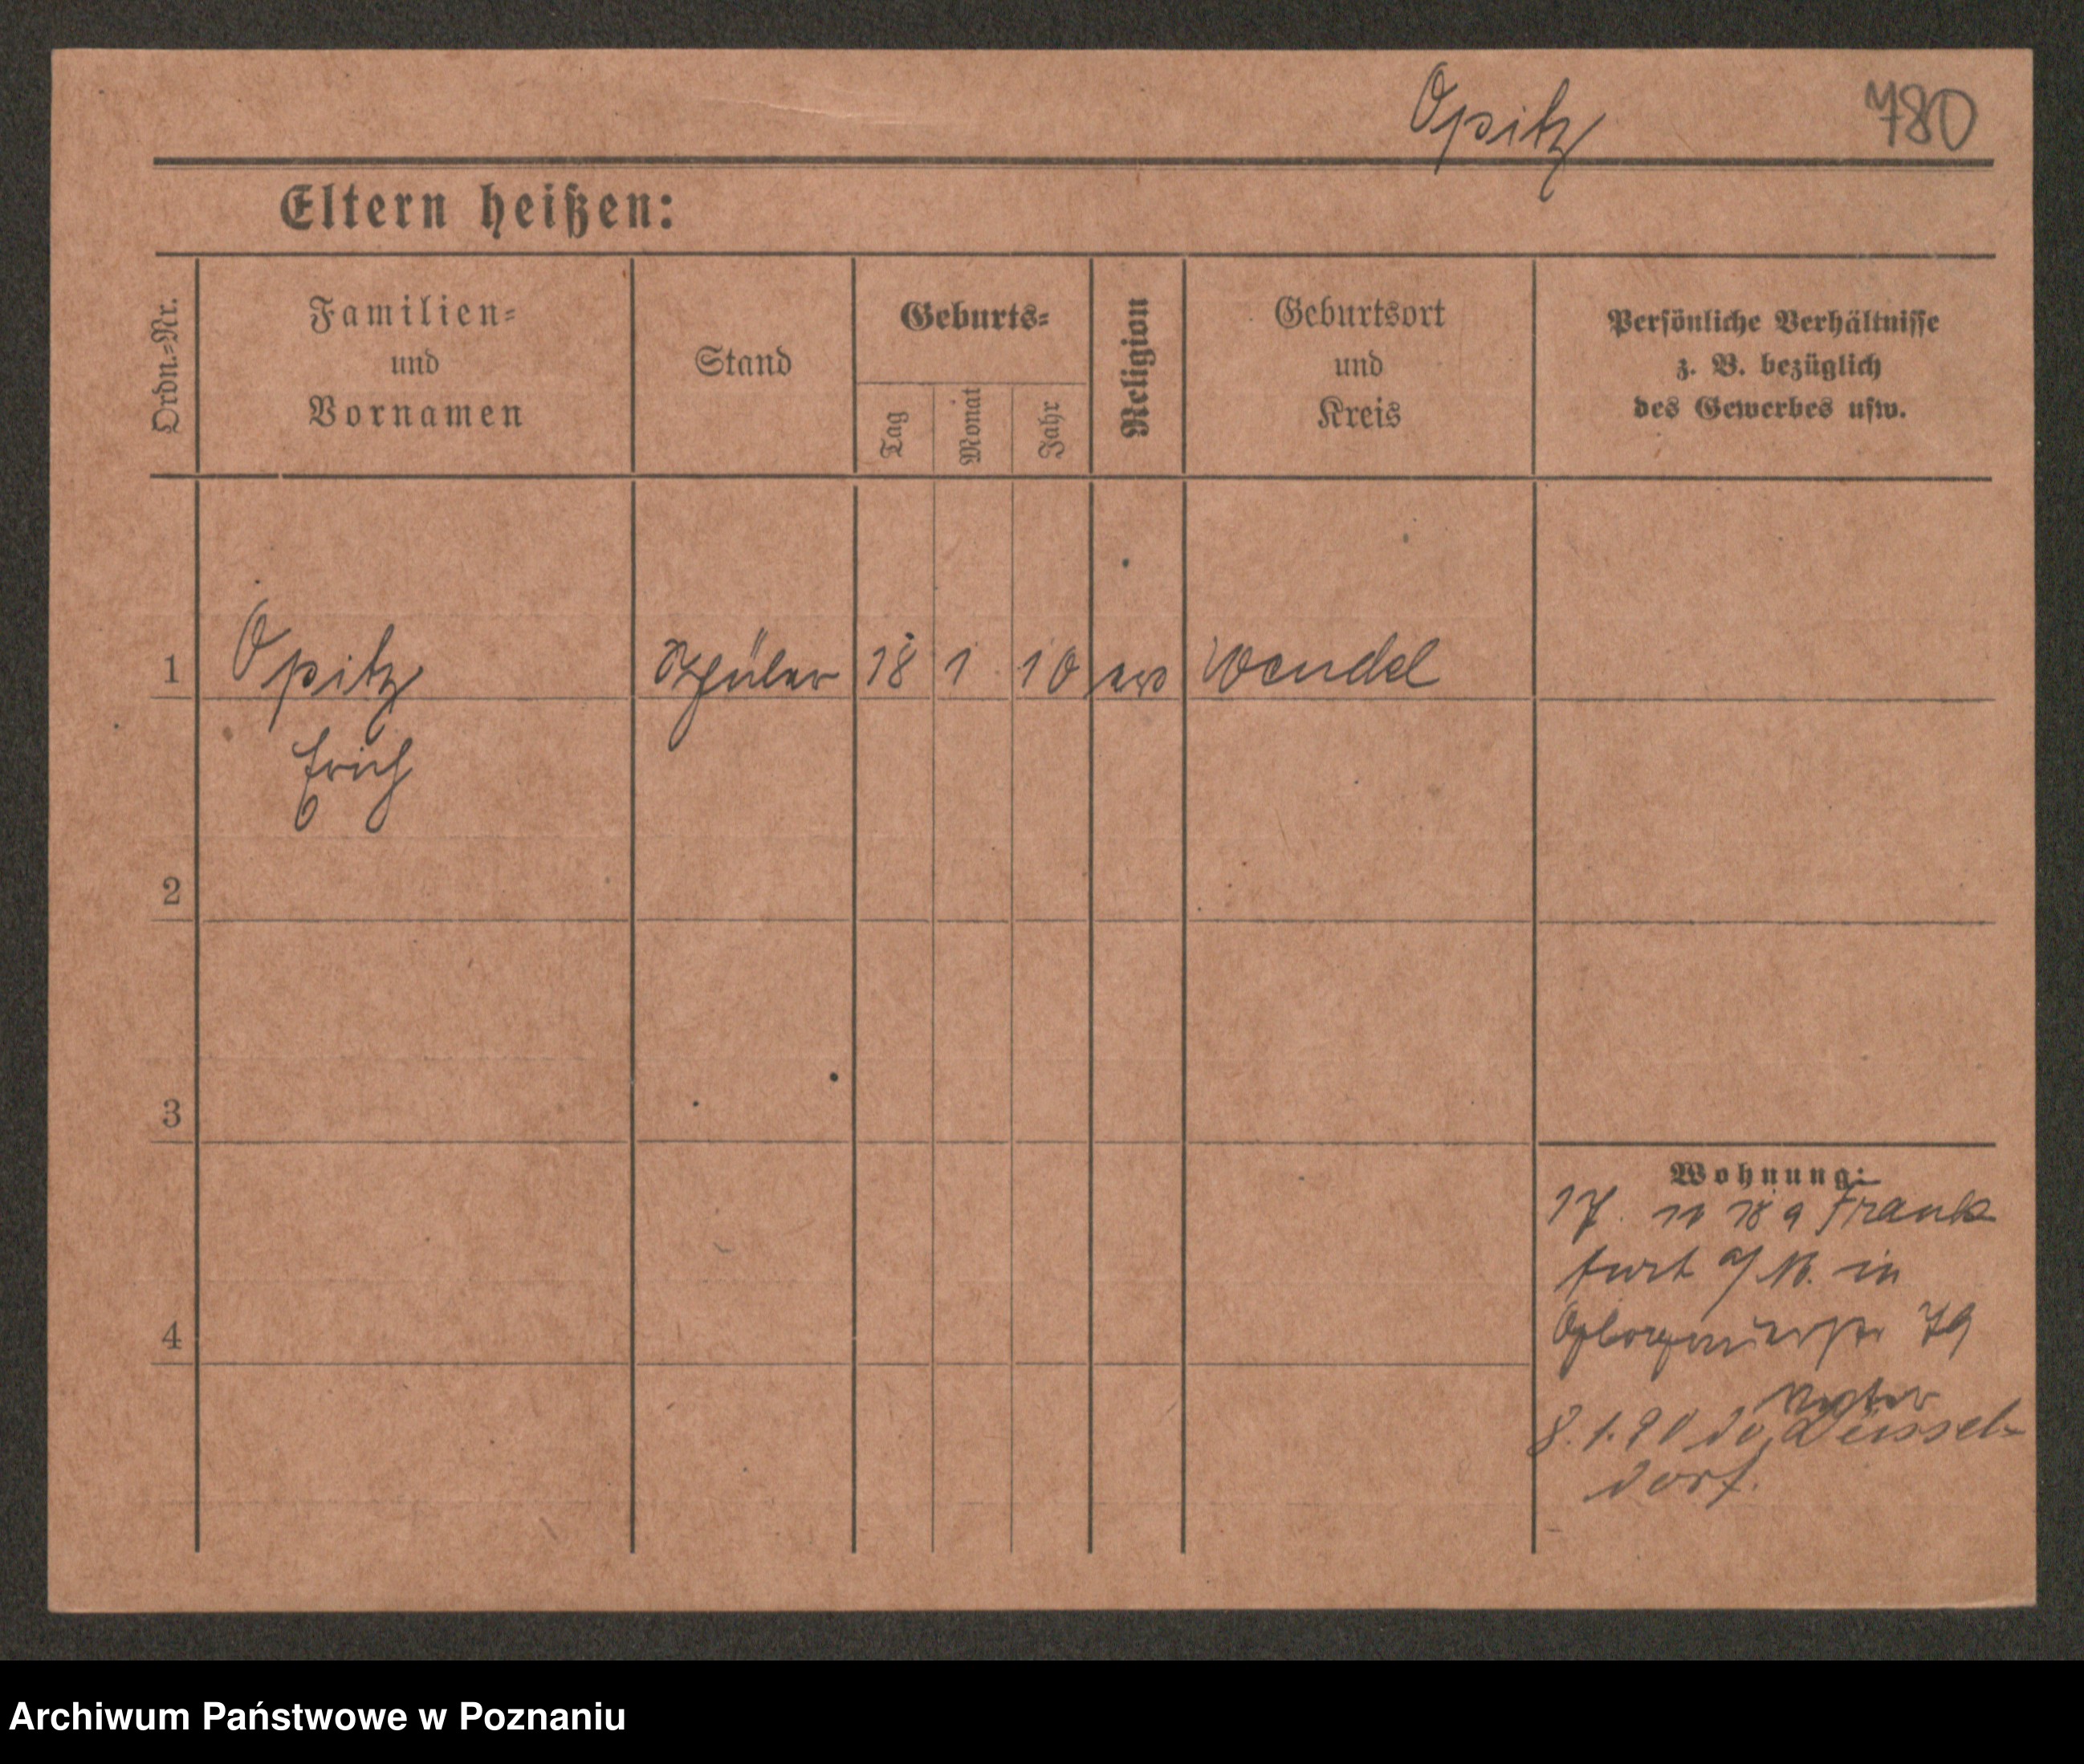 Opitz 780
Eltern heißen:
Ordn.=Nr.
Familien=
und
Vornamen
Stand
Geburts=
Tag
Monat
Jahr
Religion
Geburtsort
und
Kreis
Persönliche Verhältnisse
z. B. bezüglich
des Gewerbes usw.
1 Opitz Schüler 18 1 10 ev Wendel
Erich
2
3
4
Wohnung:
17. 11 18 a Frank
furt a/M. in
79
8.1.20 Düssel-
dorf.
Archiwum Państwowe w Poznaniu